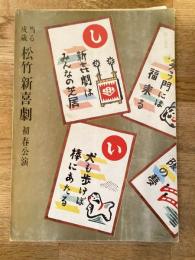 当る
戌歳
松竹新喜劇
初春公演
し
新喜劇は
みんなの芝居
笑う門には
福来る
い
犬も歩けば
棒にあたる
の夢